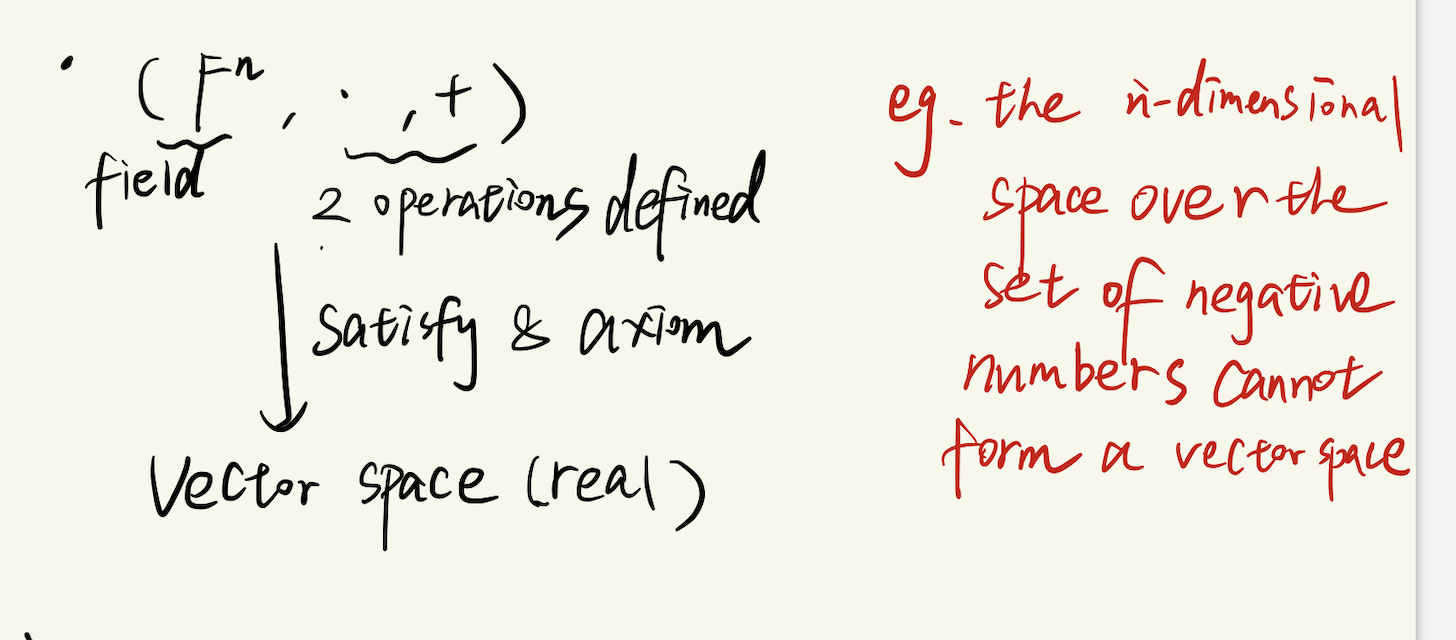 • (Fⁿ, ·, +)
field 2 operations defined
satisfy & axiom
Vector space (real)
eg. the n-dimensional
space over the
set of negative
numbers cannot
form a vector space